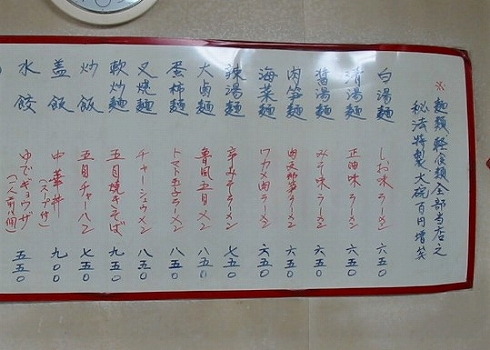 ※麺類軽食類全部当店之
秘法特製 大碗百円増
白湯麺 しお味ラーメン 六五〇
清湯麺 正油味ラーメン 六五〇
醤湯麺 みそ味ラーメン 六五〇
肉笋麺 ラーメン 六五〇
海菜麺 ワカメ肉ラーメン 六五〇
辣湯麺 辛みそラーメン 七五〇
大鹵麺 魯風五目メン 八五〇
蛋柿麺 トマト玉子ラーメン 八五〇
叉焼麺 チャーシューメン 八五〇
軟炒麺 五目焼きそば 八五〇
炒飯 五目チャーハン 七五〇
盖飯 中華丼 (スープ付) 九〇〇
水餃 ゆでギョウザ 五五〇